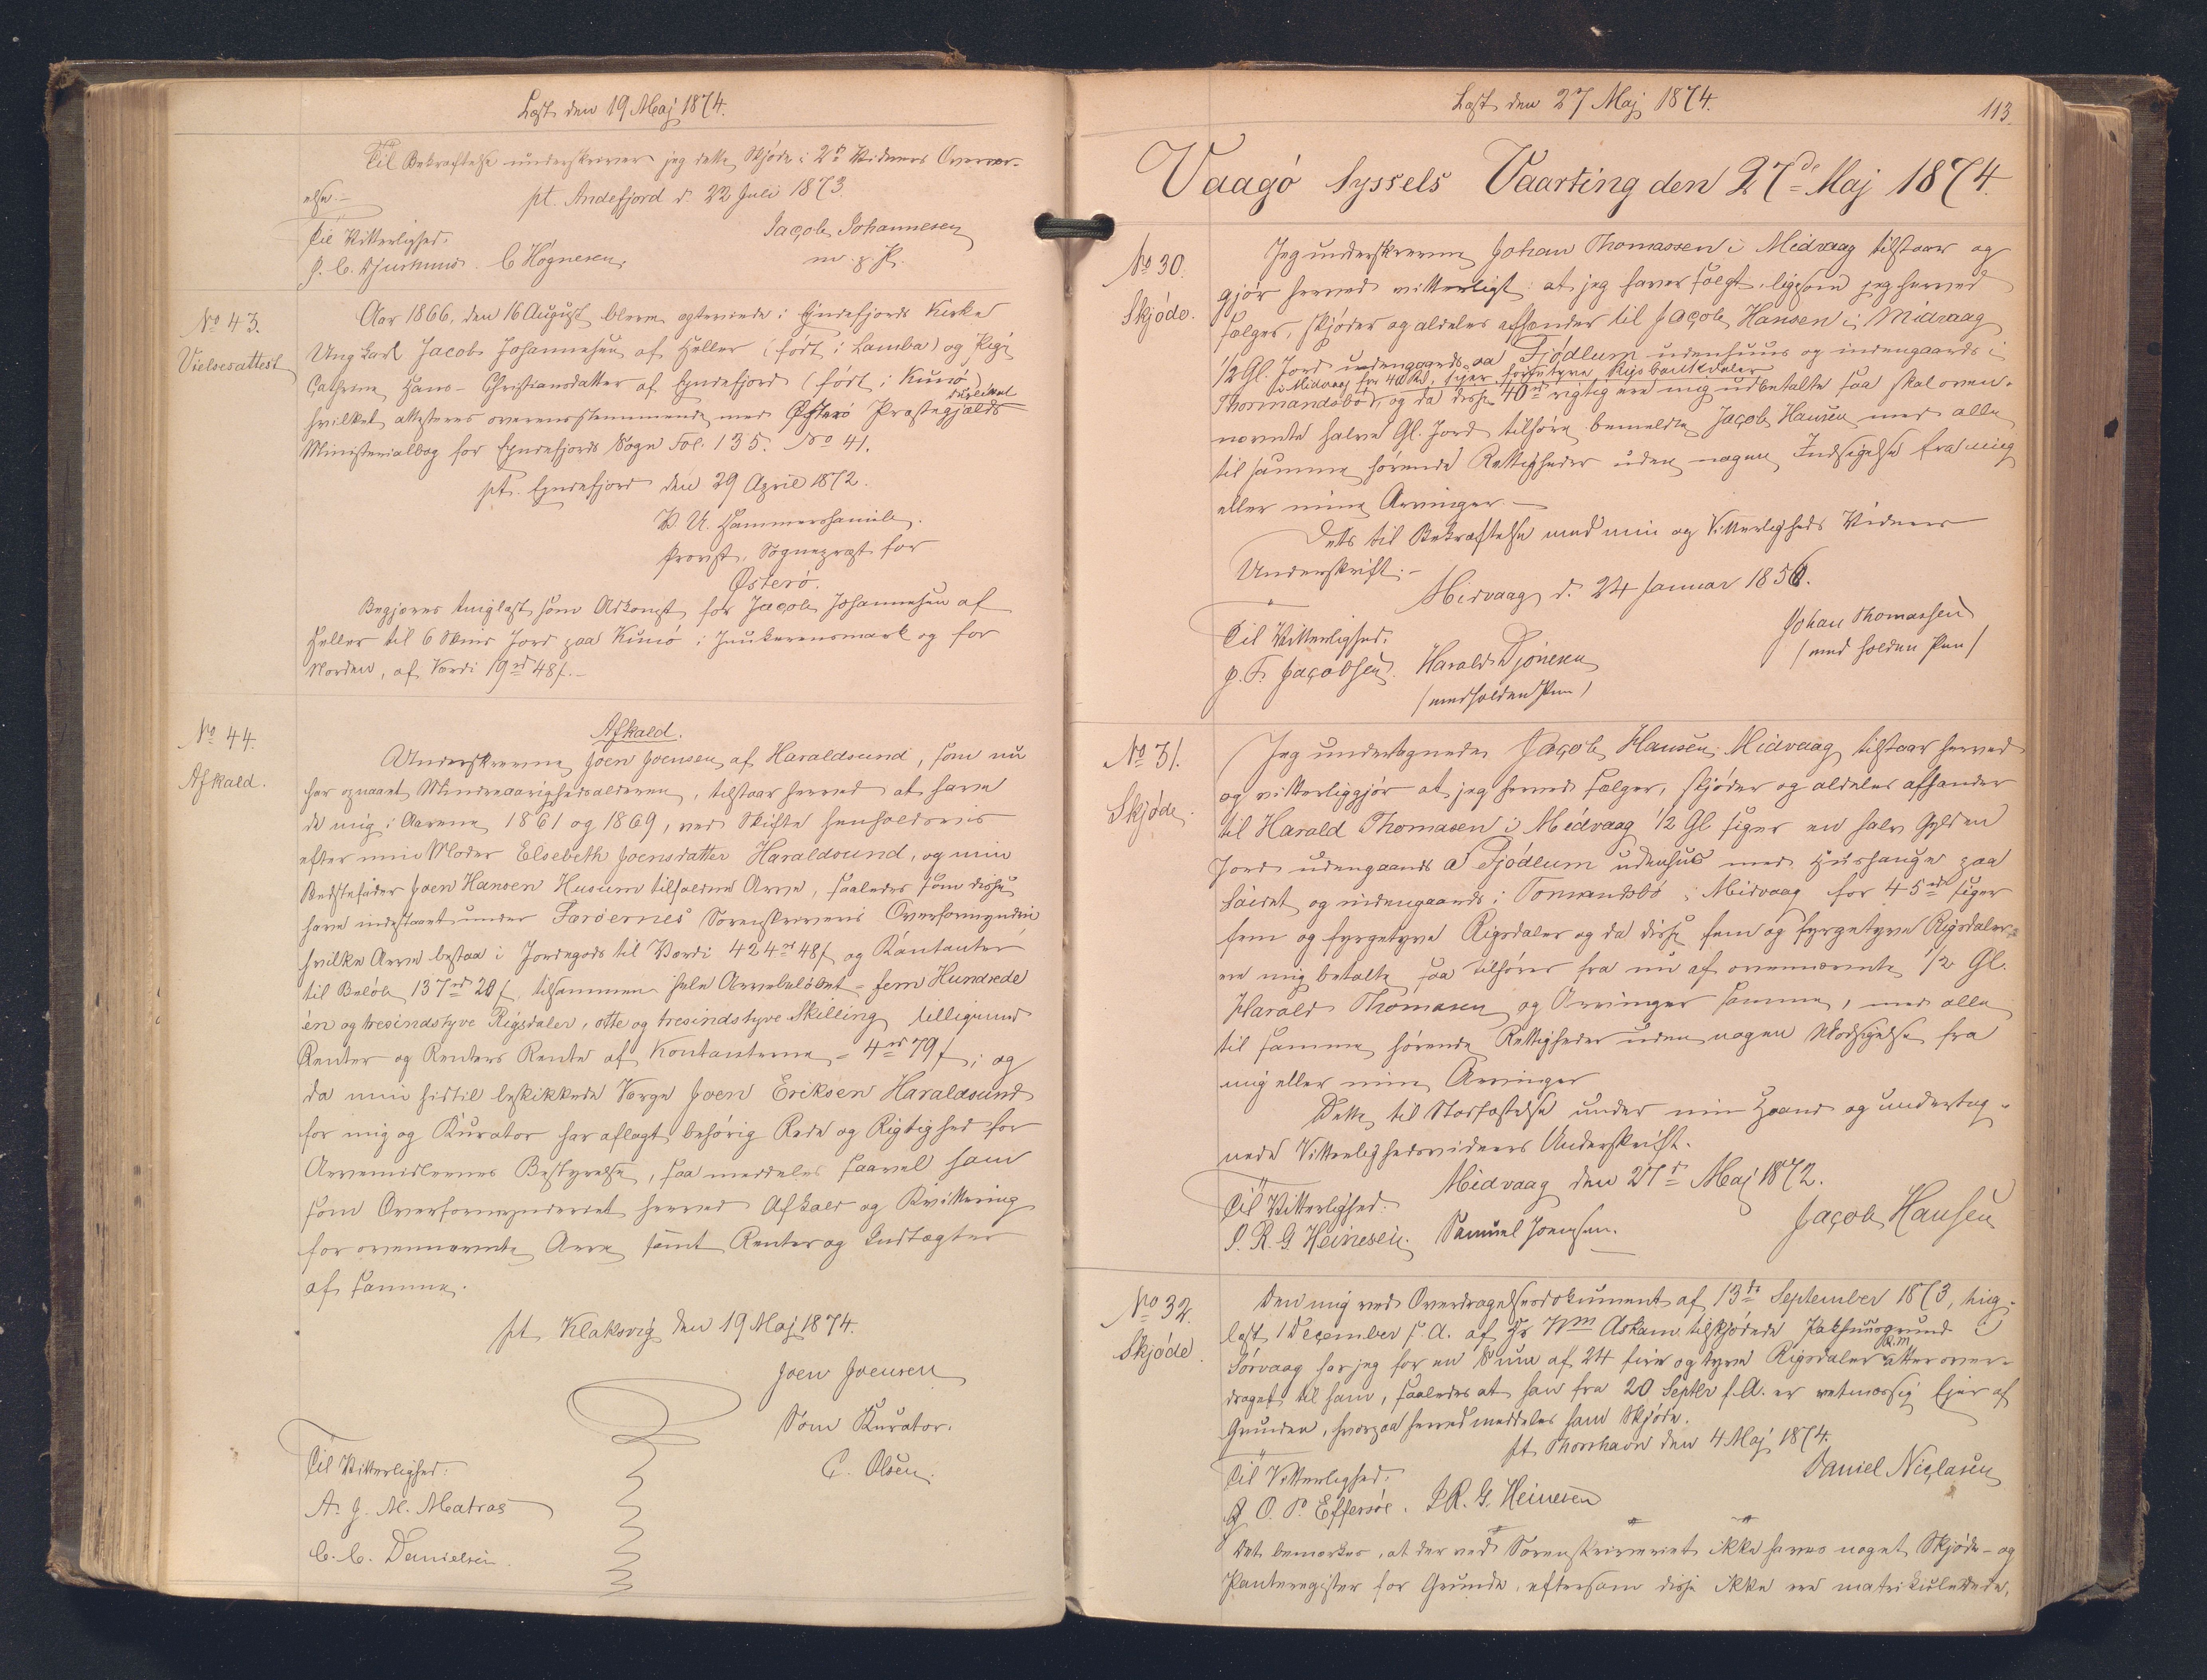 Læst den 19 Maj 1874.
Til Bekræftelse underskriver jeg dette Skjøde i 2de Vidners Overvær-
else.-
pt. Andefjord d. 22 Juli 1873.
Til Vitterlighed:
Jacob Johannesen
C Høgnesen.
m. p. P.
No 43.
Vielsesattest
Aar 1866, den 16 August bleve ægteviede i Eyndefjords Kirke
Ungkarl Jacob Johannesen af Heller (født i Lamba) og Pige
Cathrine Hans-Christiansdatter af Eyndefjord (født i Kunø)
hvilket attesteres overensstemmende med Østerø Præstegjælds
Ministerialbog for Eyndefjords Sogn Fol. 135. No 41.
pt. Eyndefjord den 29 April 1872.
V. U. Hammershaimb.
Provst, Sognepræst for
Østerø.
Begjæres thinglæst som Adkomst for Jacob Johannesen af
Heller til 6 Skind Jord paa Kunø i
Norden, af Værdi 19 rd 48 ß.-
No 44.
Afkald.
Afkald.
Underskrevne Joen Joensen af Haraldsund, som nu
har opnaaet Mindreaarighedsalderen, tilstaar herved at have
de mig i Aarene 1861 og 1869, ved Skifte henholdsvis
efter min Moder Elsebeth Joensdatter Haraldsund, og min
Bedstefader Joen Hansen Husum tilfaldne Arve, saaledes som disse
have indestaaet under Færøernes Sorenskriveris Overformynderi
hvilke Arve bestaa i Jordegods til Værdi 424 rd 48 ß og Kontanter
til Beløb 137 rd 20 ß, tilsammen hele Arvebeløbet = fem Hundrede
en og tresindstyve Rigsdaler, otte og tresindstyve Skilling tilligemed
Renter og Renters Rente af Kontanterne = 4 rd 79 ß; og
da min hidtil beskikkede Værge Joen Eriksen Haraldsund
for mig og Kurator har aflagt behørig Rede og Rigtighed for
Arvemidlernes Bestyrelse, saa meddeles saavel ham
som Overformynderiet herved Afkald og Kvittering
for ovennævnte Arve samt Renter og Indtægter
af samme.
pt Klaksvig den 19 Maj 1874.
Joen Joensen
Som Kurator.
C. Olsen.
Til Vitterlighed:
A. J. M. Matras
C. C. Danielsen
Læst den 27 Maj 1874.
113.
Vaagø Syssels Vaarting den 27de Maj 1874.
No 30.
Skjøde.
Jeg underskrevne Johan Thomassen i Midvaag tilstaar og
gjør herved vitterligt: at jeg haver solgt, ligesom jeg herved
sælger, skjøder og aldeles afhænder til Jacob Hansen i Midvaag
1/2 Gl. Jord udengaards aa Fjødlum udenhuus og indengaards i
i Midvaag for 40 Rd. siger fyrretyve Rigsbankdaler
Thormandsbø, og da disse 40 rd rigtig ere mig udbetalte saa skal oven-
nævnte halve Gl. Jord tilhøre bemeldte Jacob Hansen med alle
til samme hørende Rettigheder uden nogen Indsigelse fra mig
eller mine Arvinger.-
Dets til Bekræftelse med min og Vitterligheds Vidners
Underskrift.-
Midvaag d. 24 Januar 1856.
Til Vitterlighed:
Johan Thomassen
J. F. Jacobsen. Harald Djonesen
/ med holden Pen /
/ med holden Pen /
No 31.
Skjøde.
Jeg undertegnede Jacob Hansen, Midvaag tilstaar herved
og vitterliggjør at jeg herved sælger, skjøder og aldeles afhænder
til Harald Thomasen i Midvaag 1/2 Gl siger en halv Gylden
Jord udengaards a Fjødlum udenhus med Hushauge paa
og indengaards i Tormandsbø i Midvaag for 45 rd siger
fem og fyrgetyve Rigsdaler og da disse fem og fyrgetyve Rigsdaler
ere mig betalte saa tilhører fra nu af ovennævnte 1/2 Gl.
Harald Thomasen og Arvinger samme, med alle
til samme hørende Rettigheder uden nogen Modsigelse fra
mig eller mine Arvinger
Dette til Stadfæstelse under min Haand og underteg-
nede Vitterlighedsvidners Underskrift.
Midvaag den 27de Maj 1872.
Til Vitterlighed:
Jacob Hansen
S. R. G. Heinesen. Samuel Joensen.
No 32.
Skjøde.
Den mig ved Overdragelsesdokument af 13de September 1873, ting-
læst 1 December s. A. af Hr Wm Askam tilskjødede Pakhuusgrund i
Sørvaag har jeg for en Sum af 24 fire og tyve Rigsdaler R.M. atter over-
draget til ham, saaledes at han fra 20 Septbr s. A. er retmæssig Ejer af
Grunden, hvorpaa herved meddeles ham Skjøde.
pt. Thorshavn den 4 Maj 1874.
Til Vitterlighed:
Daniel Niclasen
O. P. Effersøe. S R. G. Heinesen
Det bemærkes, at der ved Sorenskriveriet ikke haves noget Skjøde- og
Panteregister for Grunde, eftersom disse ikke ere matrikulerede.